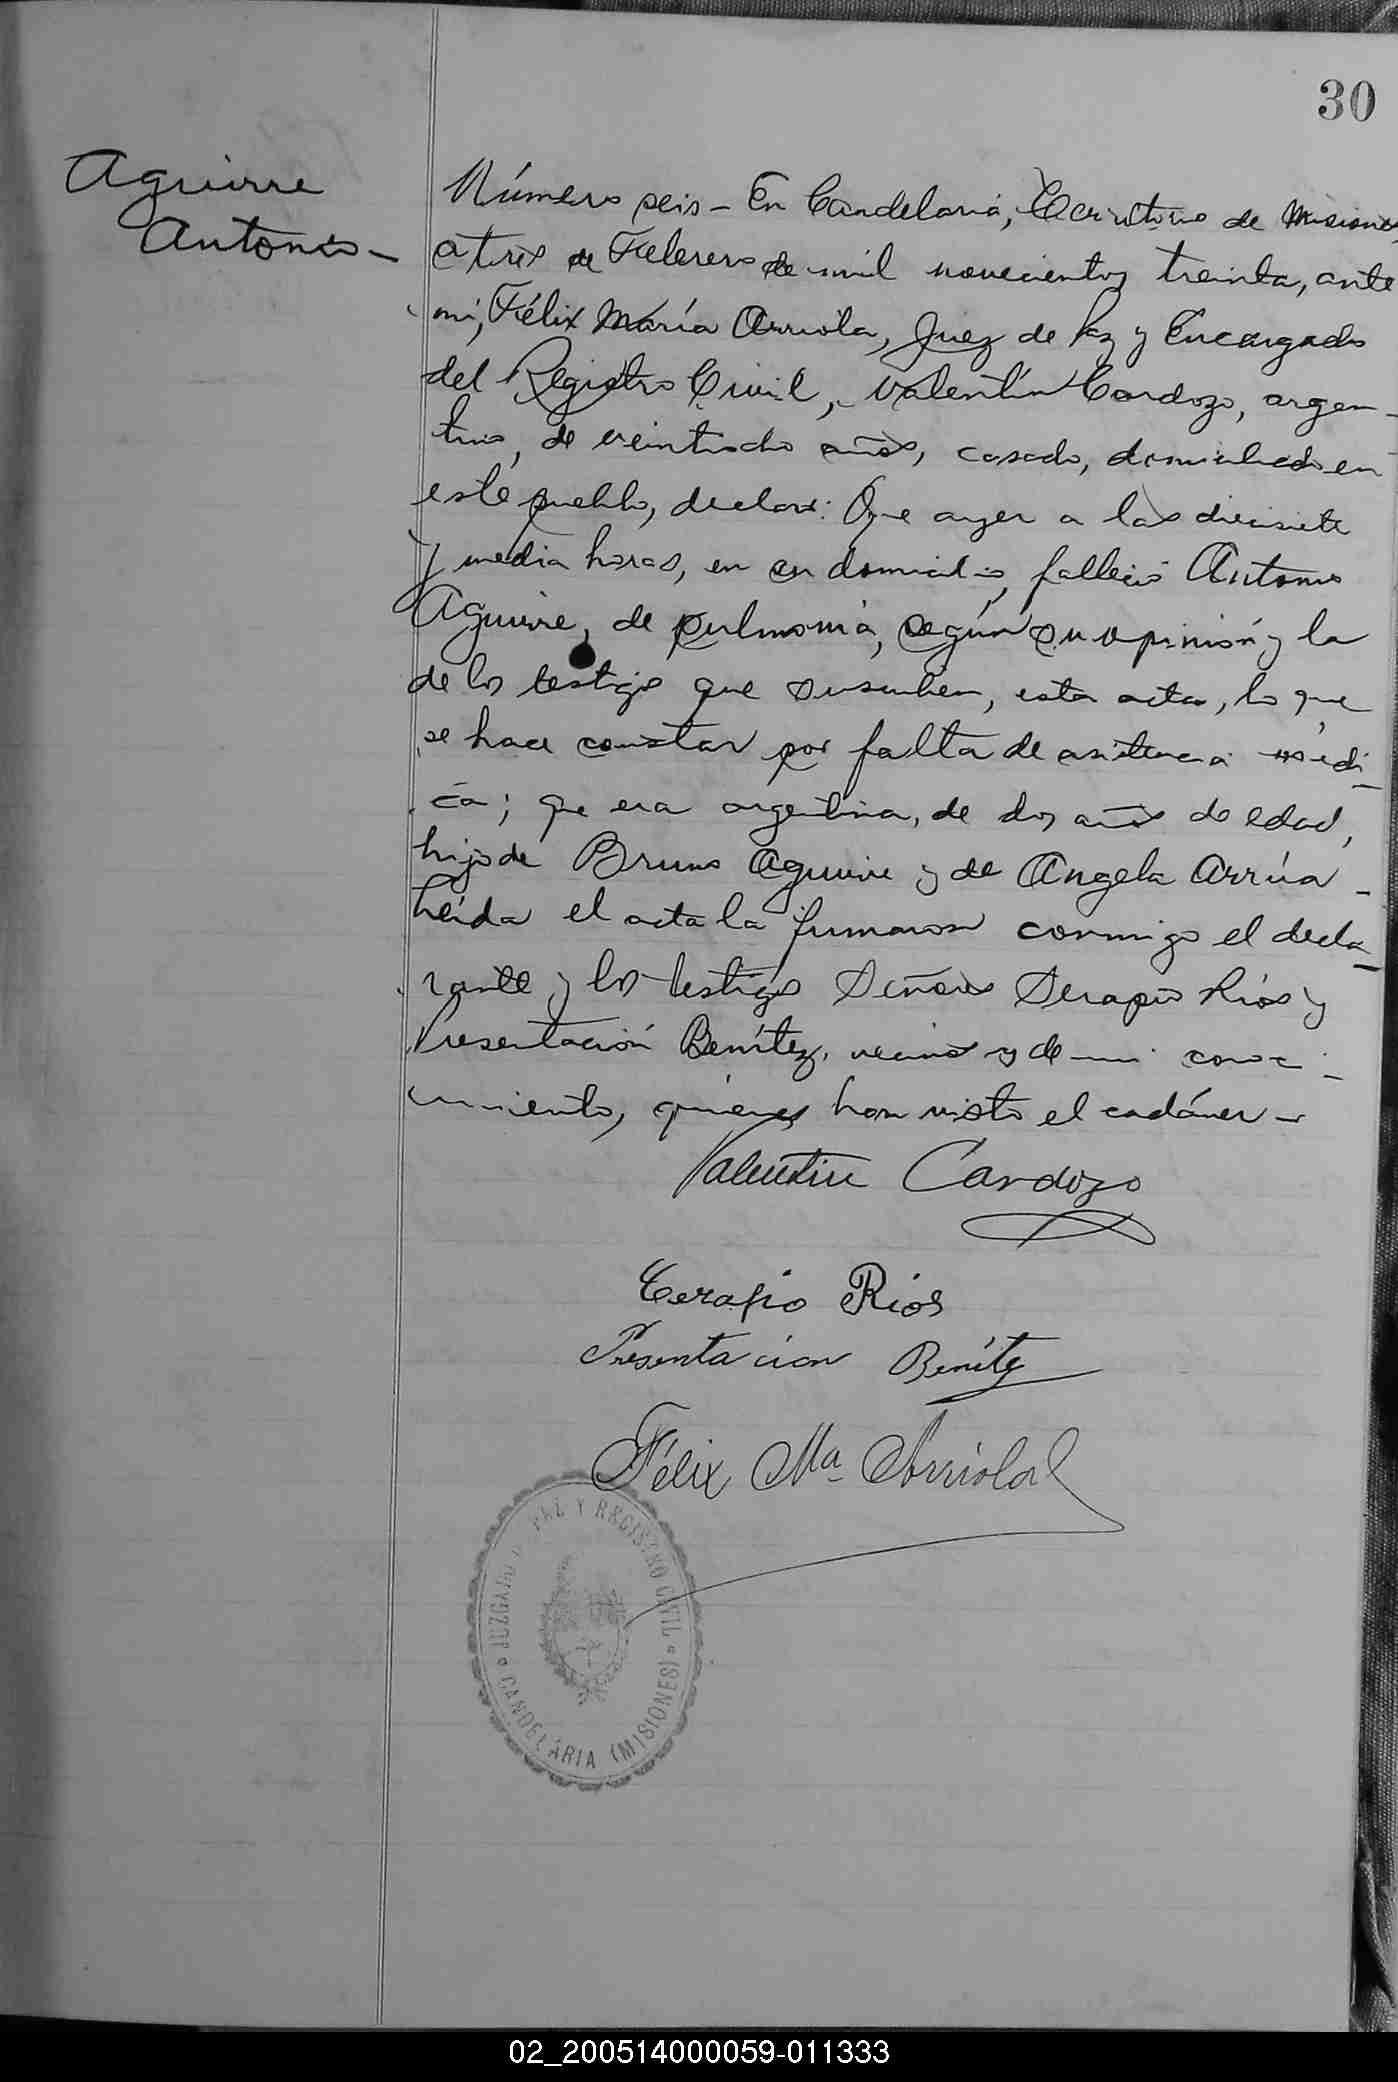 30
Aguirre
Antonio -
Número seis - En Candelaria, Territorio de Misiones
a tres de Febrero de mil novecientos treinta, ante
mi, Félix María Arriola, Juez de Paz y Encargado
del Registro Civil, Valentín Cardozo, argen-
tino, de veintiocho años, casado, domiciliado en
este pueblo, declaró: Que ayer a las diecisiete
y media horas, en su domicilio, falleció Antonio
Aguirre, de pulmonía, según su opinión y la
de los testigos que suscriben, esta acta, lo que
se hace constar por falta de asistencia médi-
ca; que era argentino, de dos años de edad,
hijo de Bruno Aguirre y de Angela Arrúa -
Leída el acta la firmaron conmigo el decla-
rante y los testigos Señores Serapio Ríos y
Presentación Benítez, vecinos y de mi conoci-
miento, quienes han visto el cadáver -
Valentin Cardozo
Cerapio Rios
Presentacion Benítez
Félix Ma. Arriola
JUZGADO DE PAZ Y REGISTRO CIVIL
CANDELARIA (MISIONES)
02_200514000059-011333